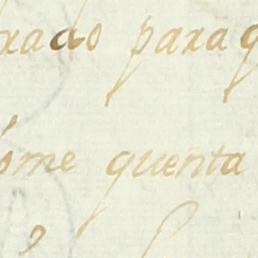 xado para q
óme quenta